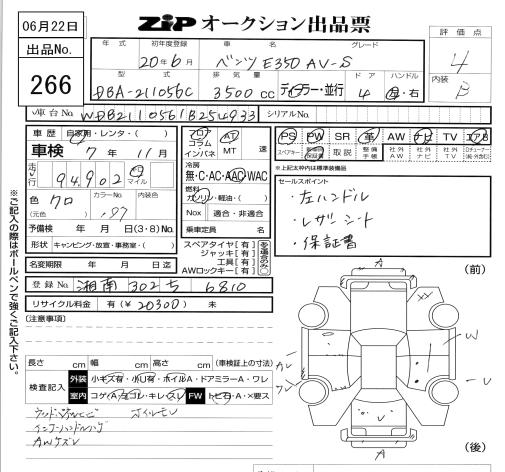 06月22日
出品No.
266
ZiP オークション出品票
評価点
4
内装
B
年式 初年度登録 車名 グレード
20年6月 ベンツ E350 AV-S
型式 排気量 ドア ハンドル
DBA-211056C 3500cc ディーラー・並行 4 左・右
車台No. WDB2110561B254933 シリアルNo.
車歴 自家用・レンタ・( )
車検 7年 11月
走行 94,902 km マイル
色 クロ カラーNo. 197 内装色
(元色)
予備検 年 月 日(3・8)No.
形状 キャンピング・放宣・事務室・( )
フロア コラム インパネ
AT MT 速
冷房
無・C・AC・AAC・WAC
燃料
ガソリン・軽油・( )
Nox 適合・非適合
乗車定員 名
PS PW SR 革 AW ナビ TV エアB
スペアキー 新車時保証書 取説 整備手帳 社外AW 社外ナビ 社外TV
※上記太枠内は標準装備品
セールスポイント
・左ハンドル
・レザーシート
・保証書
名変期限 年 月 日迄
スペアタイヤ[有]
ジャッキ[有]
工具[有]
AWロックキー[有]
登録No. 湘南 302 ち 6810
リサイクル料金 有(¥20300) 未
(注意事項)
長さ cm 幅 cm 高さ cm (車検証上の寸法)
検査記入 外装 小キズ有・小U有・ホイルA・ドアミラーA・ワレ
室内 コゲ・穴・ヨゴレ・キレ・スレ FW トビ石・A・×要ス
AWキズレ
※ご記入の際はボールペンで強くご記入下さい。
(前)
A
W
U
U
A
(後)